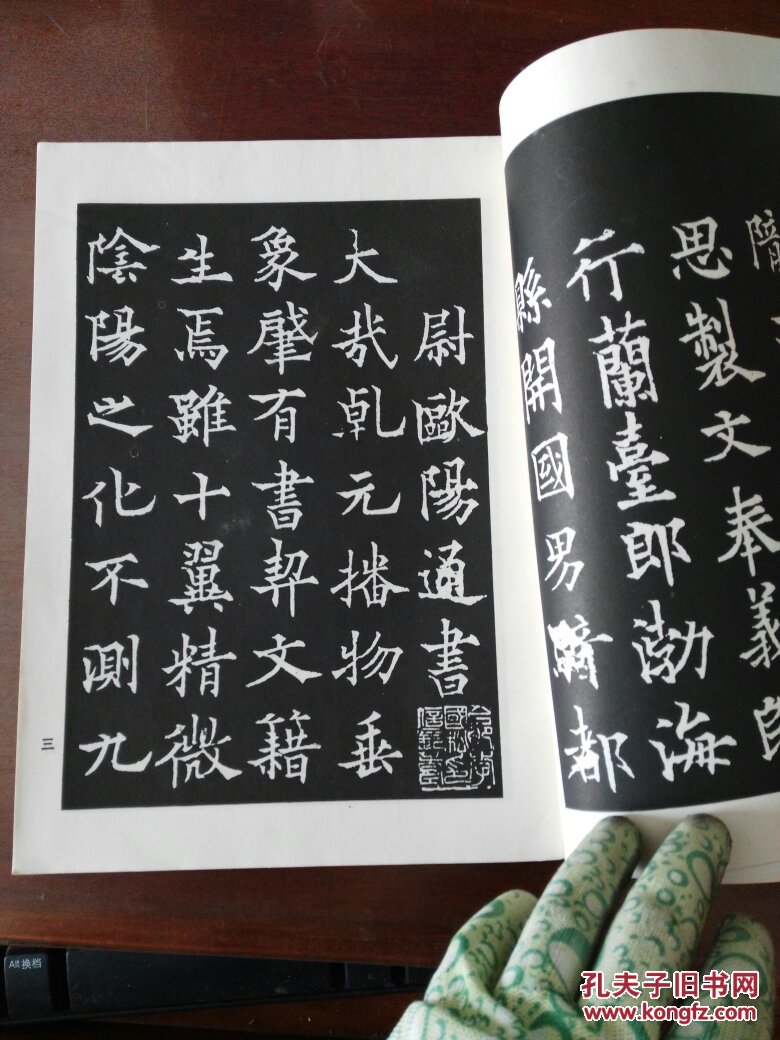 思製文奉義郎
行蘭臺郎渤海
縣開國男
騎都
尉歐陽通書
大哉乹元播物垂
象肇有書契文籍
生焉雖十翼精微
陰陽之化不測九
三
Alt 换档
孔夫子旧书网
www.kongfz.com